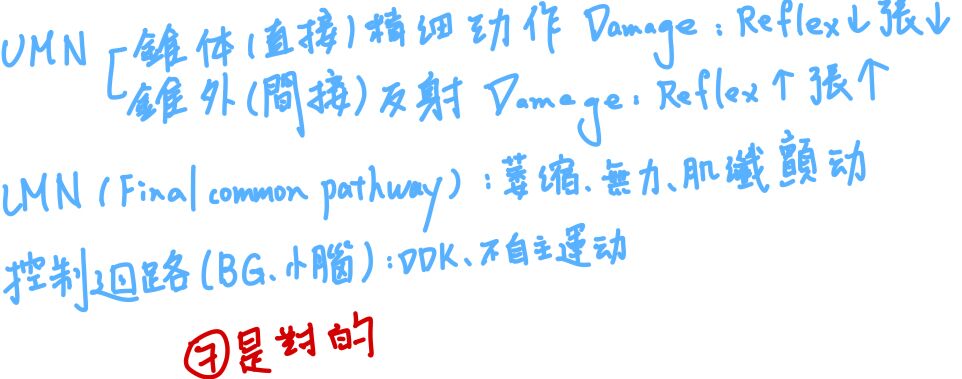 UMN 錐体(直接)精细动作 Damage:Reflex↓張↓
錐外(間接)反射 Damage:Reflex↑張↑
LMN (Final common pathway):萎缩、無力、肌纖顫动
控制迴路(BG、小腦):DDK、不自主運动
⑦是對的